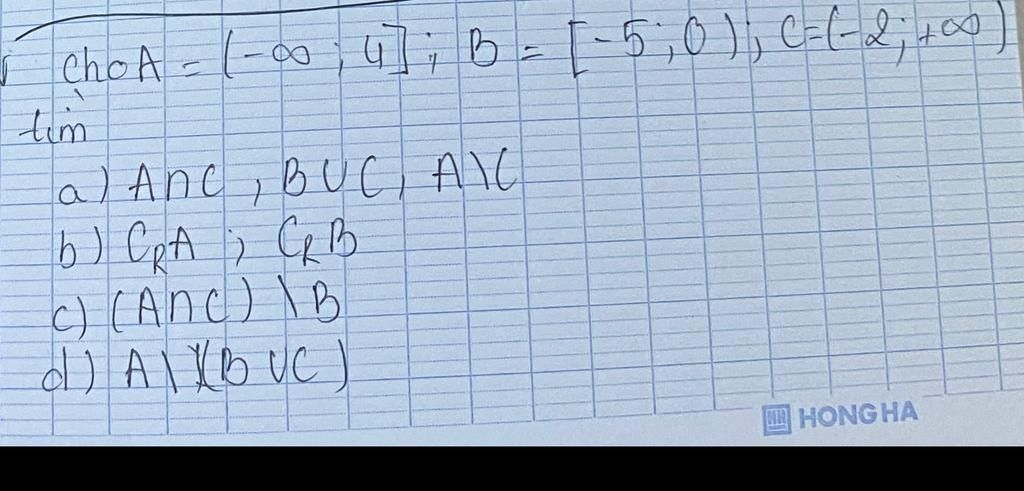 cho A = (-∞ ; 4] ; B = [-5 ; 0) ; C = (-2 ; +∞)
tìm
a) A∩C , B∪C , A\C
b) CRA ; CRB
c) (A∩C) \ B
d) A \ (B∪C)
HONG HA